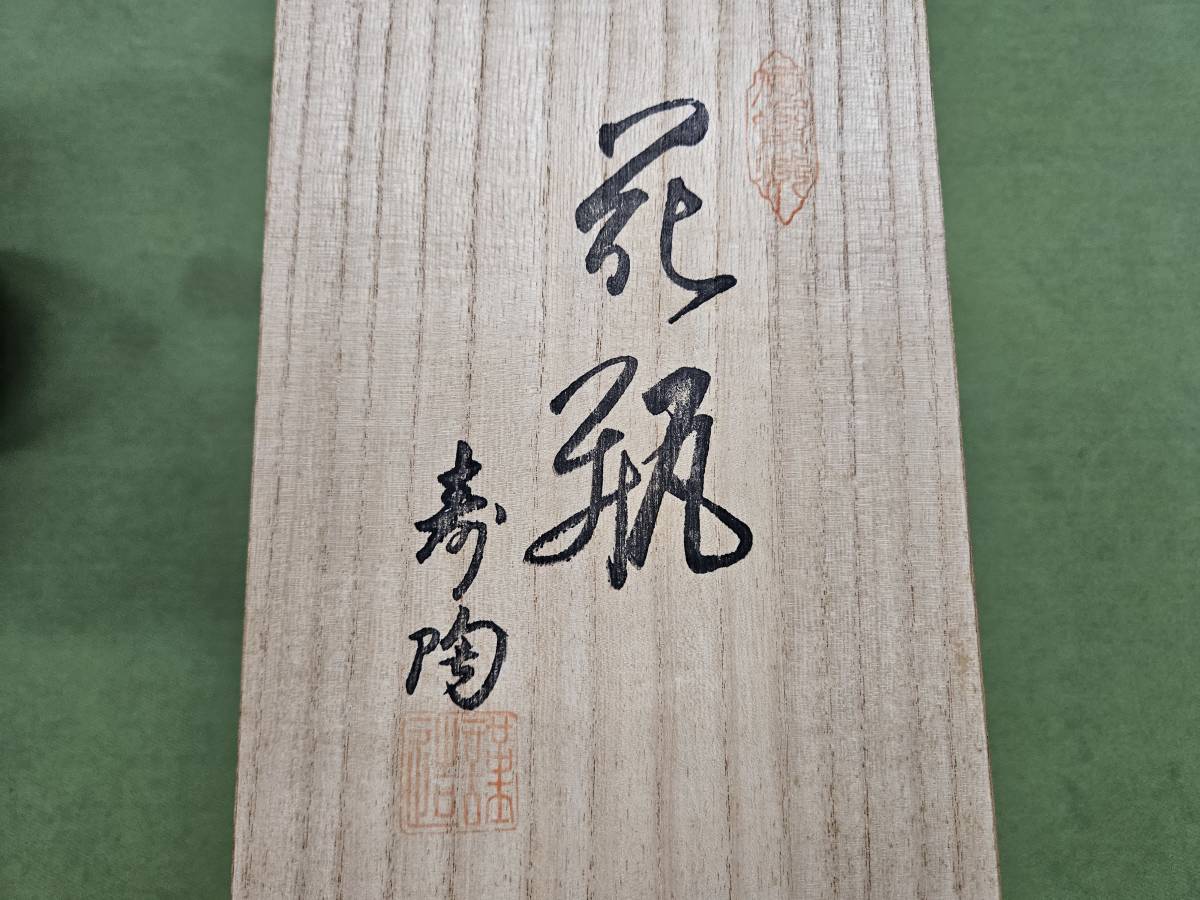 花瓶
寿陶